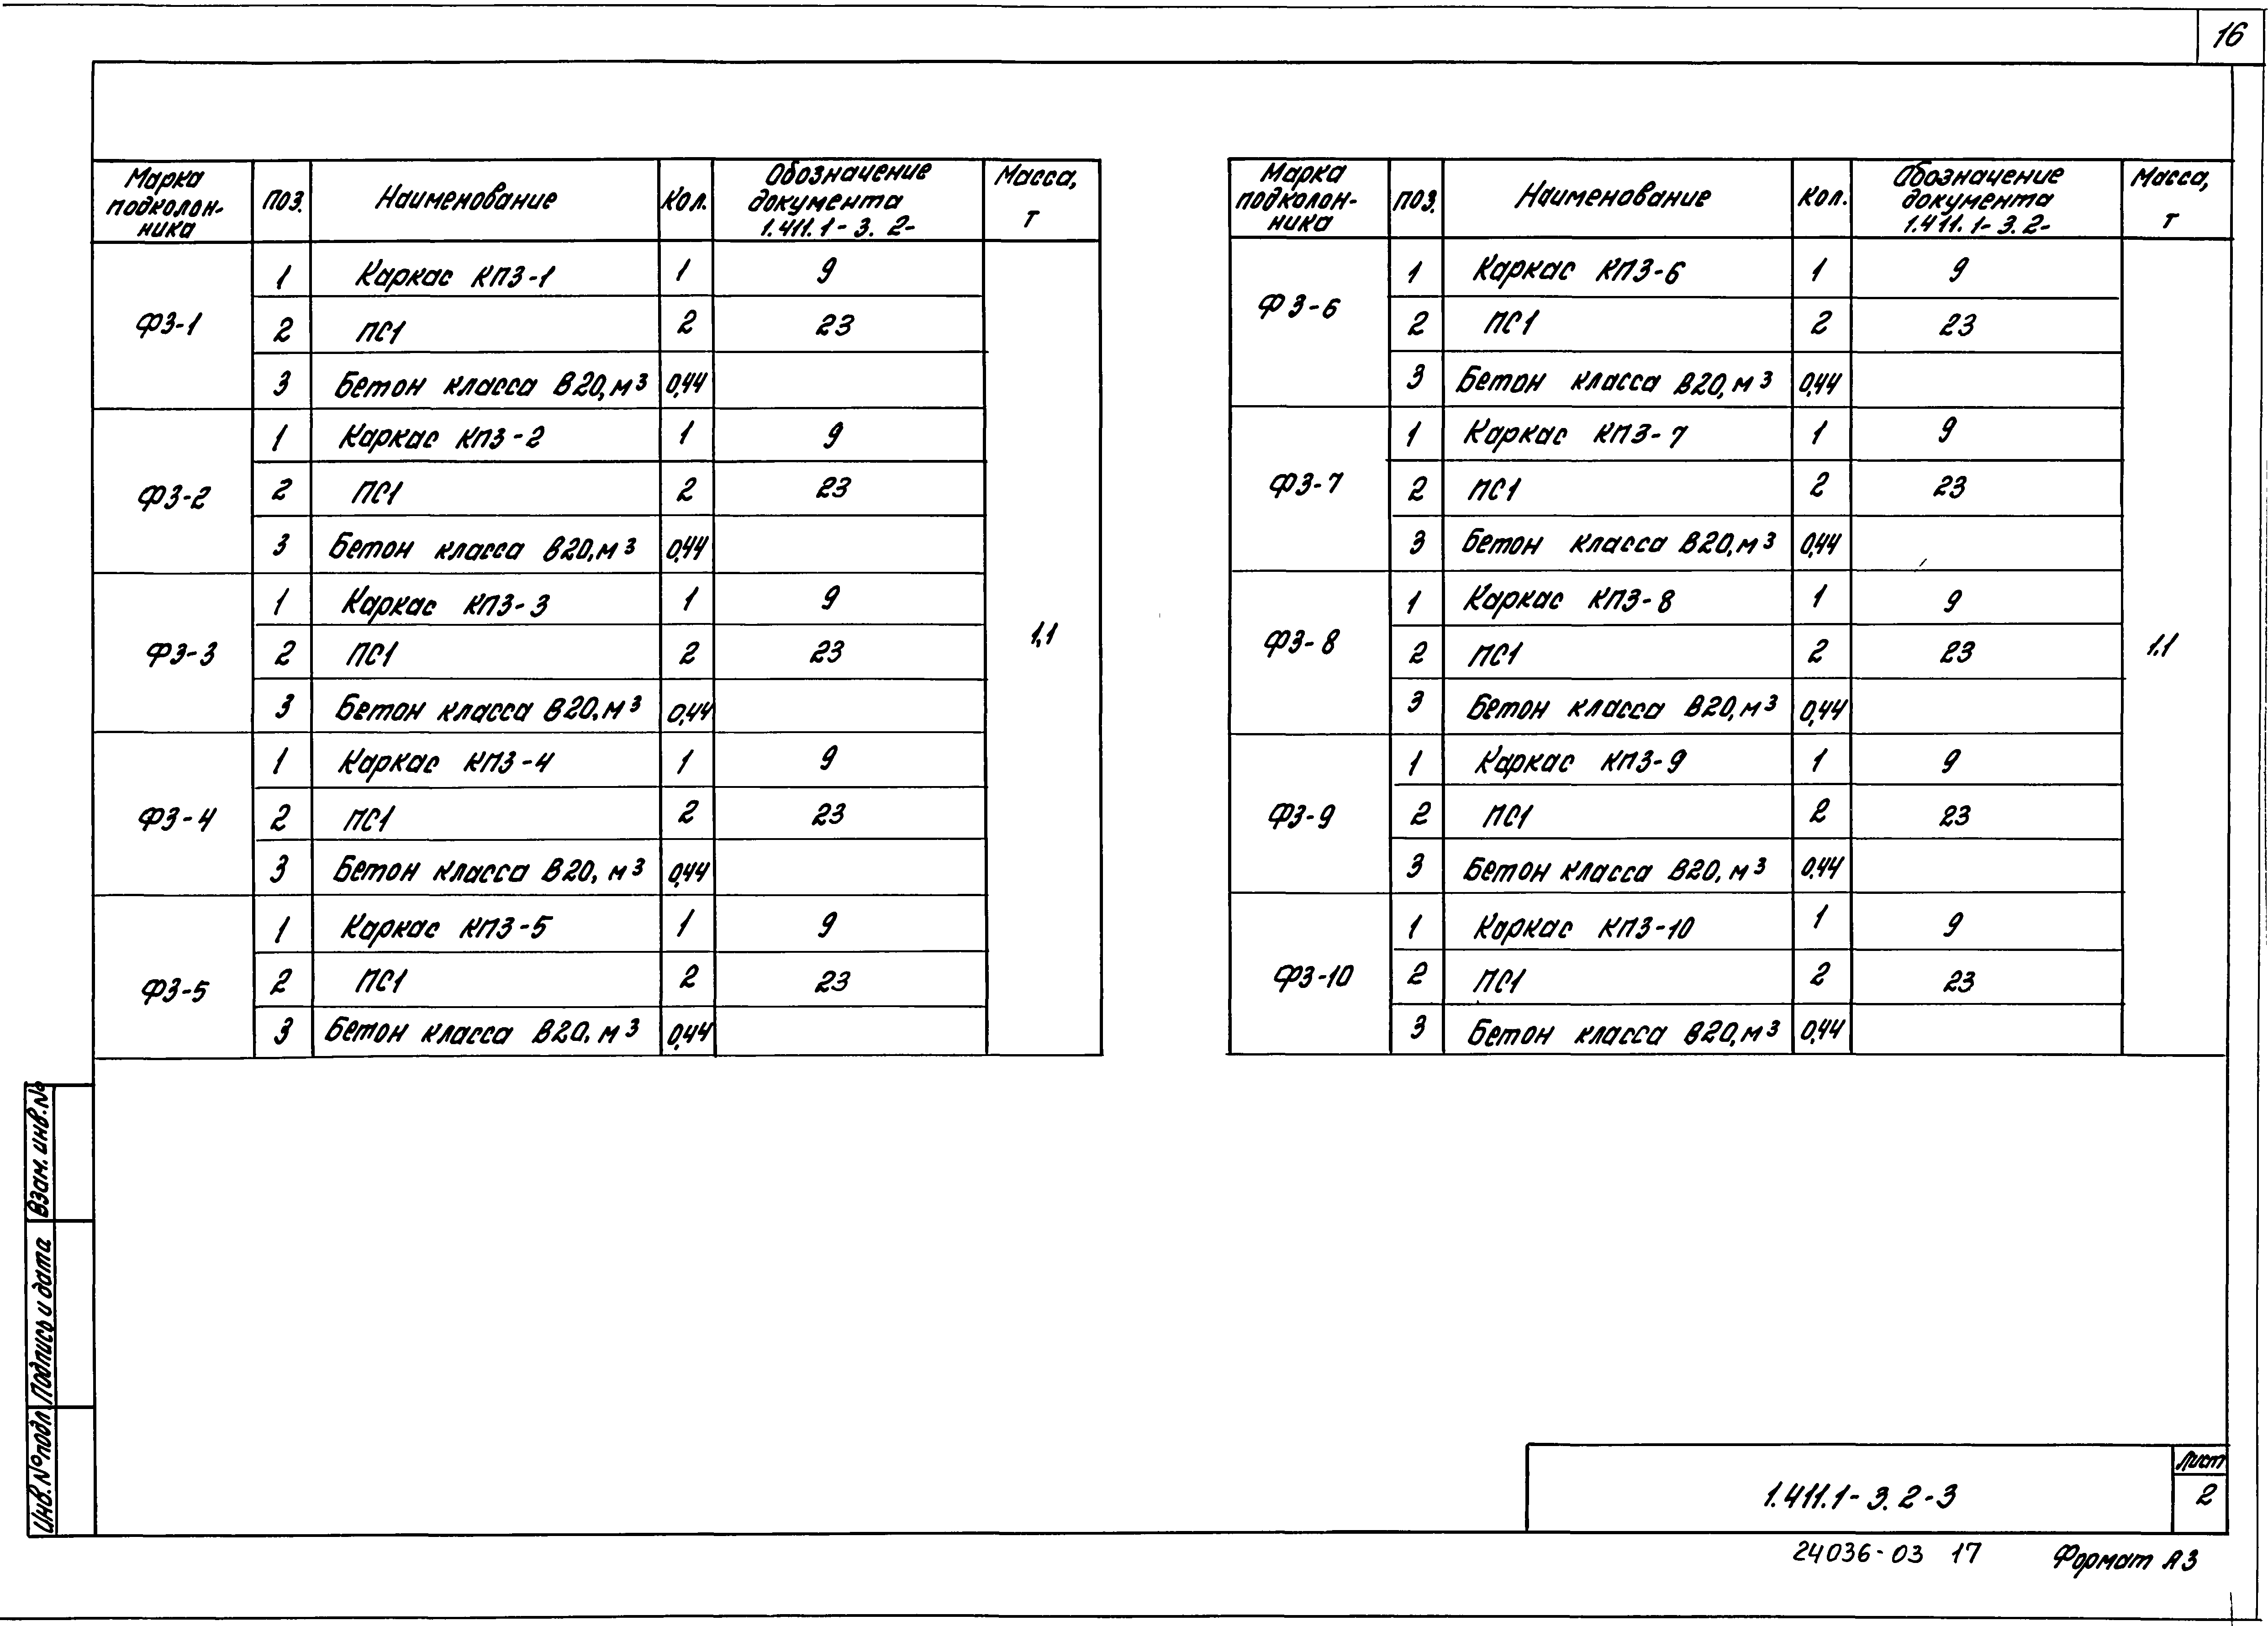 16
Марка подколон-ника | поз. | Наименование | Кол. | Обозначение документа 1.411.1-3.2- | Масса, т
Ф3-1 | 1 | Каркас КП3-1 | 1 | 9 | 1,1
2 | ПС1 | 2 | 23
3 | Бетон класса В20, м³ | 0,44
Ф3-2 | 1 | Каркас КП3-2 | 1 | 9
2 | ПС1 | 2 | 23
3 | Бетон класса В20, м³ | 0,44
Ф3-3 | 1 | Каркас КП3-3 | 1 | 9
2 | ПС1 | 2 | 23
3 | Бетон класса В20, м³ | 0,44
Ф3-4 | 1 | Каркас КП3-4 | 1 | 9
2 | ПС1 | 2 | 23
3 | Бетон класса В20, м³ | 0,44
Ф3-5 | 1 | Каркас КП3-5 | 1 | 9
2 | ПС1 | 2 | 23
3 | Бетон класса В20, м³ | 0,44
Марка подколон-ника | поз. | Наименование | Кол. | Обозначение документа 1.411.1-3.2- | Масса, т
Ф3-6 | 1 | Каркас КП3-6 | 1 | 9 | 1.1
2 | ПС1 | 2 | 23
3 | Бетон класса В20, м³ | 0,44
Ф3-7 | 1 | Каркас КП3-7 | 1 | 9
2 | ПС1 | 2 | 23
3 | Бетон класса В20, м³ | 0,44
Ф3-8 | 1 | Каркас КП3-8 | 1 | 9
2 | ПС1 | 2 | 23
3 | Бетон класса В20, м³ | 0,44
Ф3-9 | 1 | Каркас КП3-9 | 1 | 9
2 | ПС1 | 2 | 23
3 | Бетон класса В20, м³ | 0,44
Ф3-10 | 1 | Каркас КП3-10 | 1 | 9
2 | ПС1 | 2 | 23
3 | Бетон класса В20, м³ | 0,44
Взам. инв. №
Подпись и дата
Инв. № подл
1.411.1-3.2-3
Лист
2
24036-03 17
Формат А3